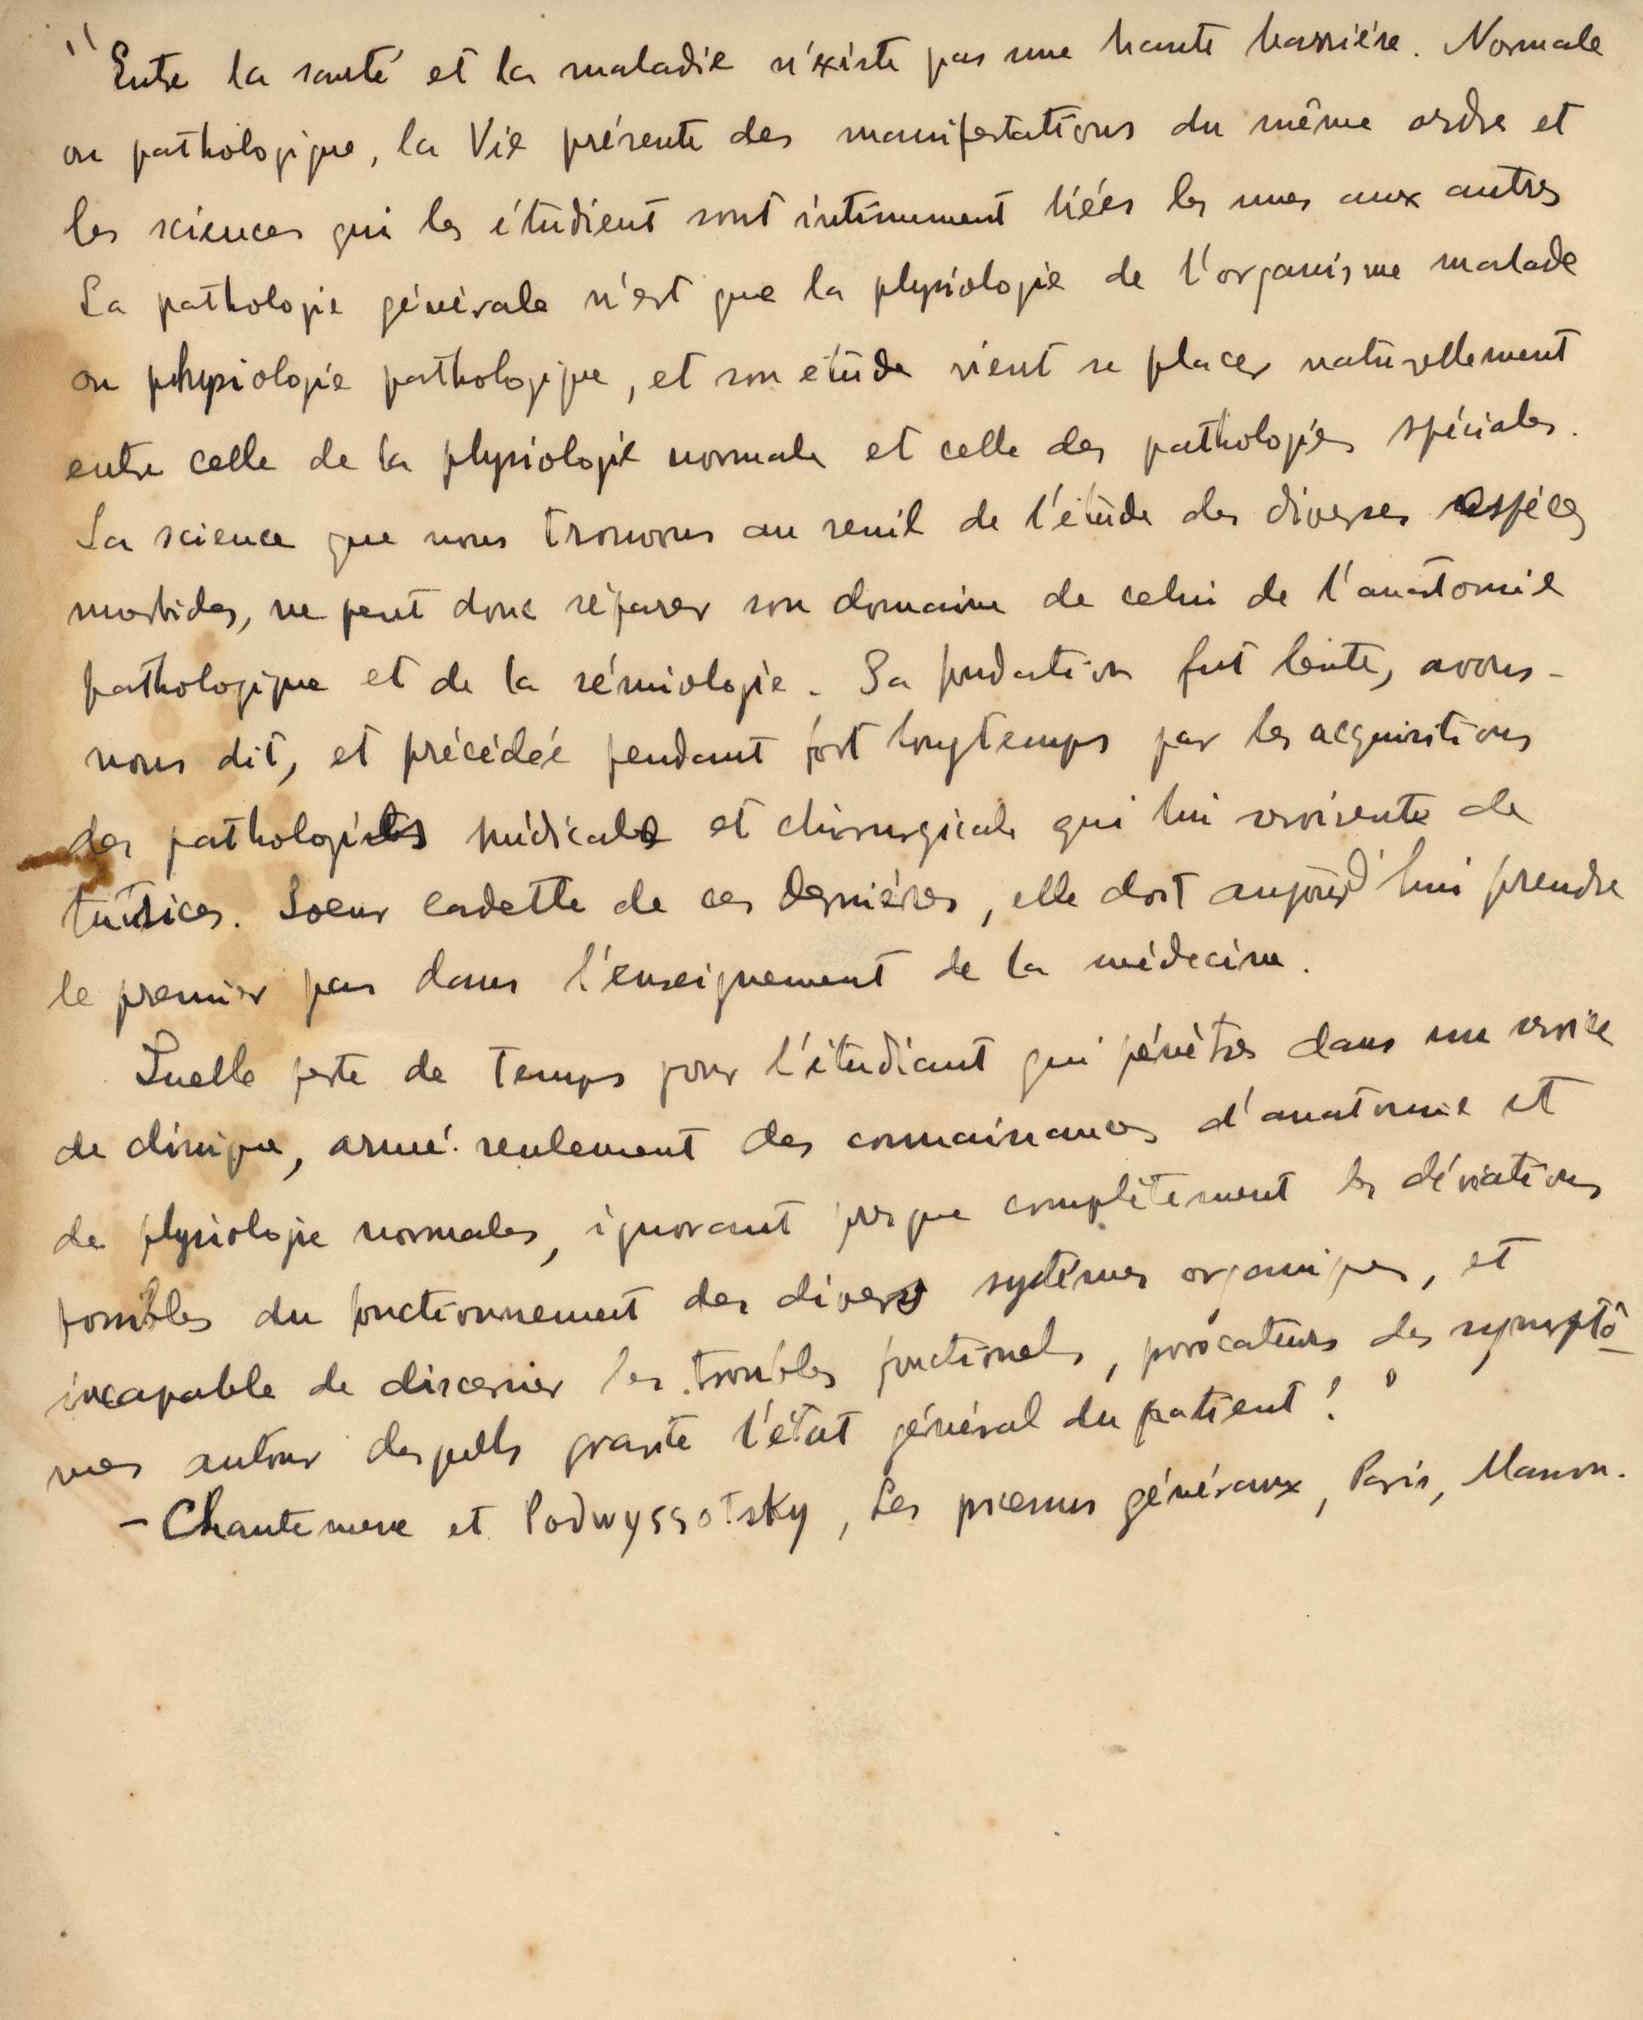 "Entre la santé et la maladie n'existe pas une haute barrière. Normale
ou pathologique, la Vie présente des manifestations du même ordre et
les sciences qui les étudient sont intimement liées les unes aux autres
La pathologie générale n'est que la physiologie de l'organisme malade
ou physiologie pathologique, et son étude vient se placer naturellement
entre celle de la physiologie normale et celle des pathologies spéciales.
La science que nous trouvons au seuil de l'étude des diverses espèces
morbides, ne peut donc séparer son domaine de celui de l'anatomie
pathologique et de la sémiologie. Sa fondation fut lente, avons-
nous dit, et précédée pendant fort longtemps par les acquisitions
des pathologies médicale et chirurgicale qui lui servirent de
tutrices. Soeur cadette de ces dernières, elle doit aujourd'hui prendre
le premier pas dans l'enseignement de la médecine.
Quelle perte de temps pour l'étudiant qui pénètre dans un service
de clinique, armé seulement des connaissances d'anatomie et
de physiologie normales, ignorant presque complètement les déviations
possibles du fonctionnement des divers systèmes organiques, et
incapable de discerner les troubles fonctionnels, provocateurs des symptô-
mes autour desquels gravite l'état général du patient!"
- Chantemesse et Podwyssotsky, Les processus généraux, Paris, Masson.